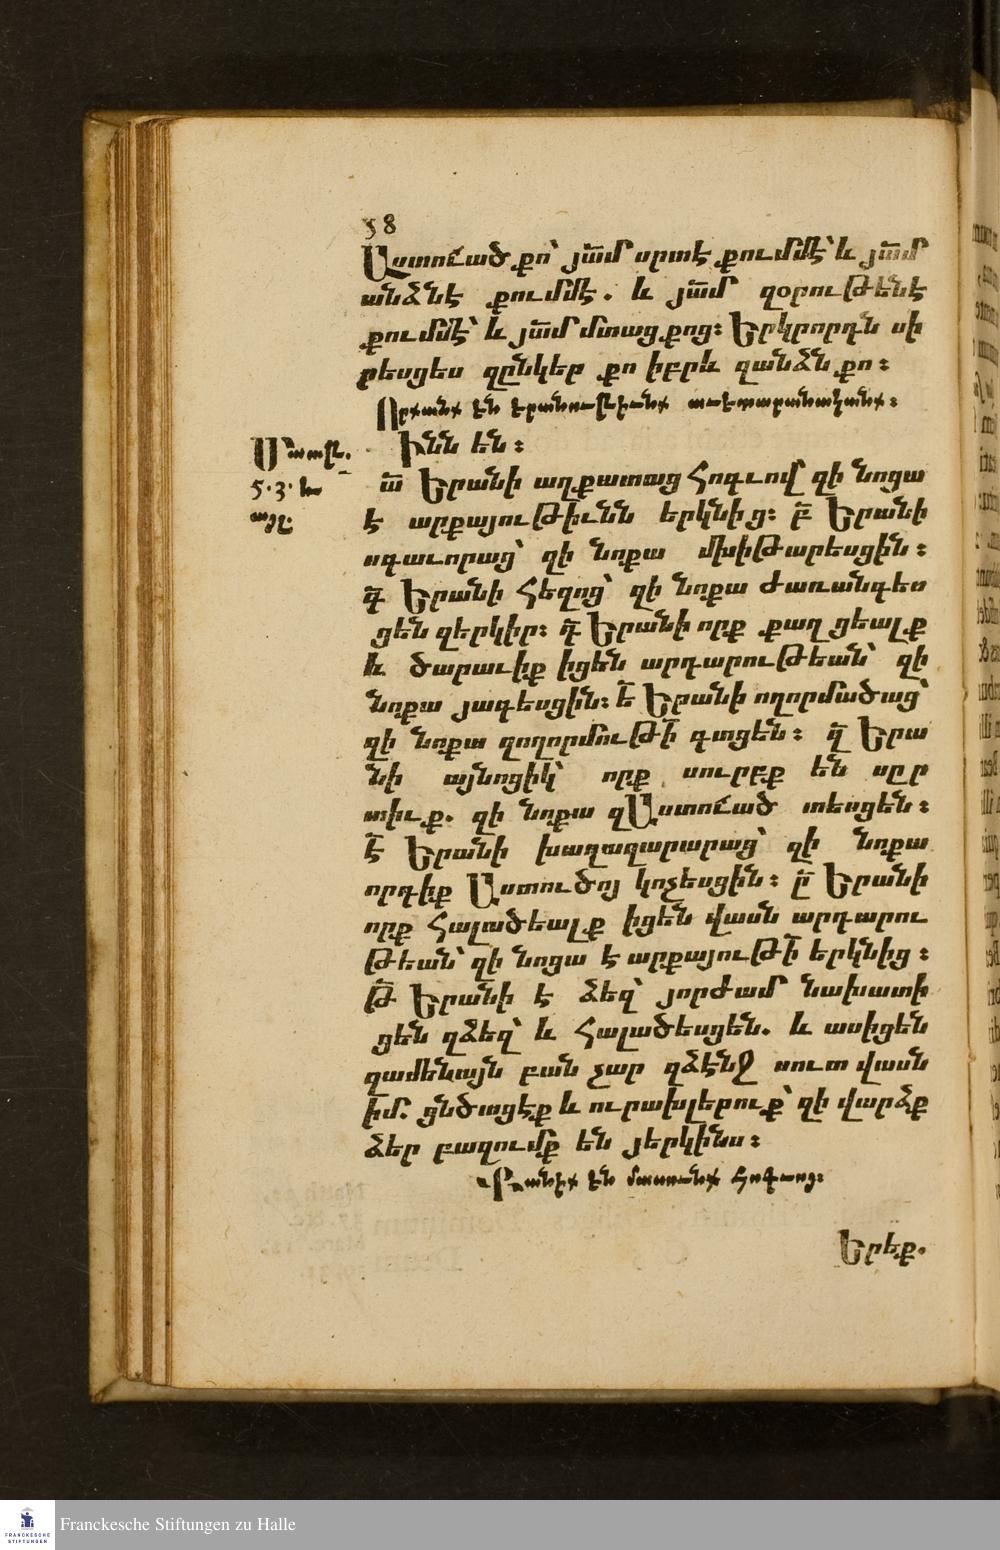 38
Աստուած քո՝ յա՟մ սրտէ քումմէ՝ և յա՟մ
անձնէ քումմէ. և յա՟մ զօրութենէ
քումմէ՝ և յա՟մ մտաց քոց։ Երկրորդն սի
րեսցես զընկեր քո իբրև զանձն քո։
Որքանք են երանութիւնք աւետարանականք։
Մատթ. Ինն են։
5.3. ա՟ Երանի աղքատաց հոգւով՝ զի նոցա
է արքայութիւնն երկնից։ բ՟ Երանի
սգաւորաց՝ զի նոքա մխիթարեսցին։
գ՟ Երանի հեզոց՝ զի նոքա ժառանգես
ցեն զերկիր։ դ՟ Երանի որք քաղցեալք
և ծարաւիք իցեն արդարութեան՝ զի
նոքա յագեսցին։ ե՟ Երանի ողորմածաց՝
զի նոքա զողորմութի՟ գտցեն։ զ՟ Երա
նի այնոցիկ՝ որք սուրբք են սըր
տիւք. զի նոքա զԱստուած տեսցեն։
է՟ Երանի խաղաղարարաց՝ զի նոքա
որդիք Աստուծոյ կոչեսցին։ ը՟ Երանի
որք հալածեալք իցեն վասն արդարու
թեան՝ զի նոցա է արքայութի՟ երկնից։
թ՟ Երանի է ձեզ՝ յորժամ նախատի
ցեն զձեզ՝ և հալածեսցեն. և ասիցեն
զամենայն բան չար զձէնջ սուտ վասն
իմ. ցնծացէք և ուրախլերուք՝ զի վարձք
ձեր բազումք են յերկինս։
Քանիք են մասունք հոգւոյ։
Երեք.
Franckesche Stiftungen zu Halle
FRANCKESCHE
STIFTUNGEN